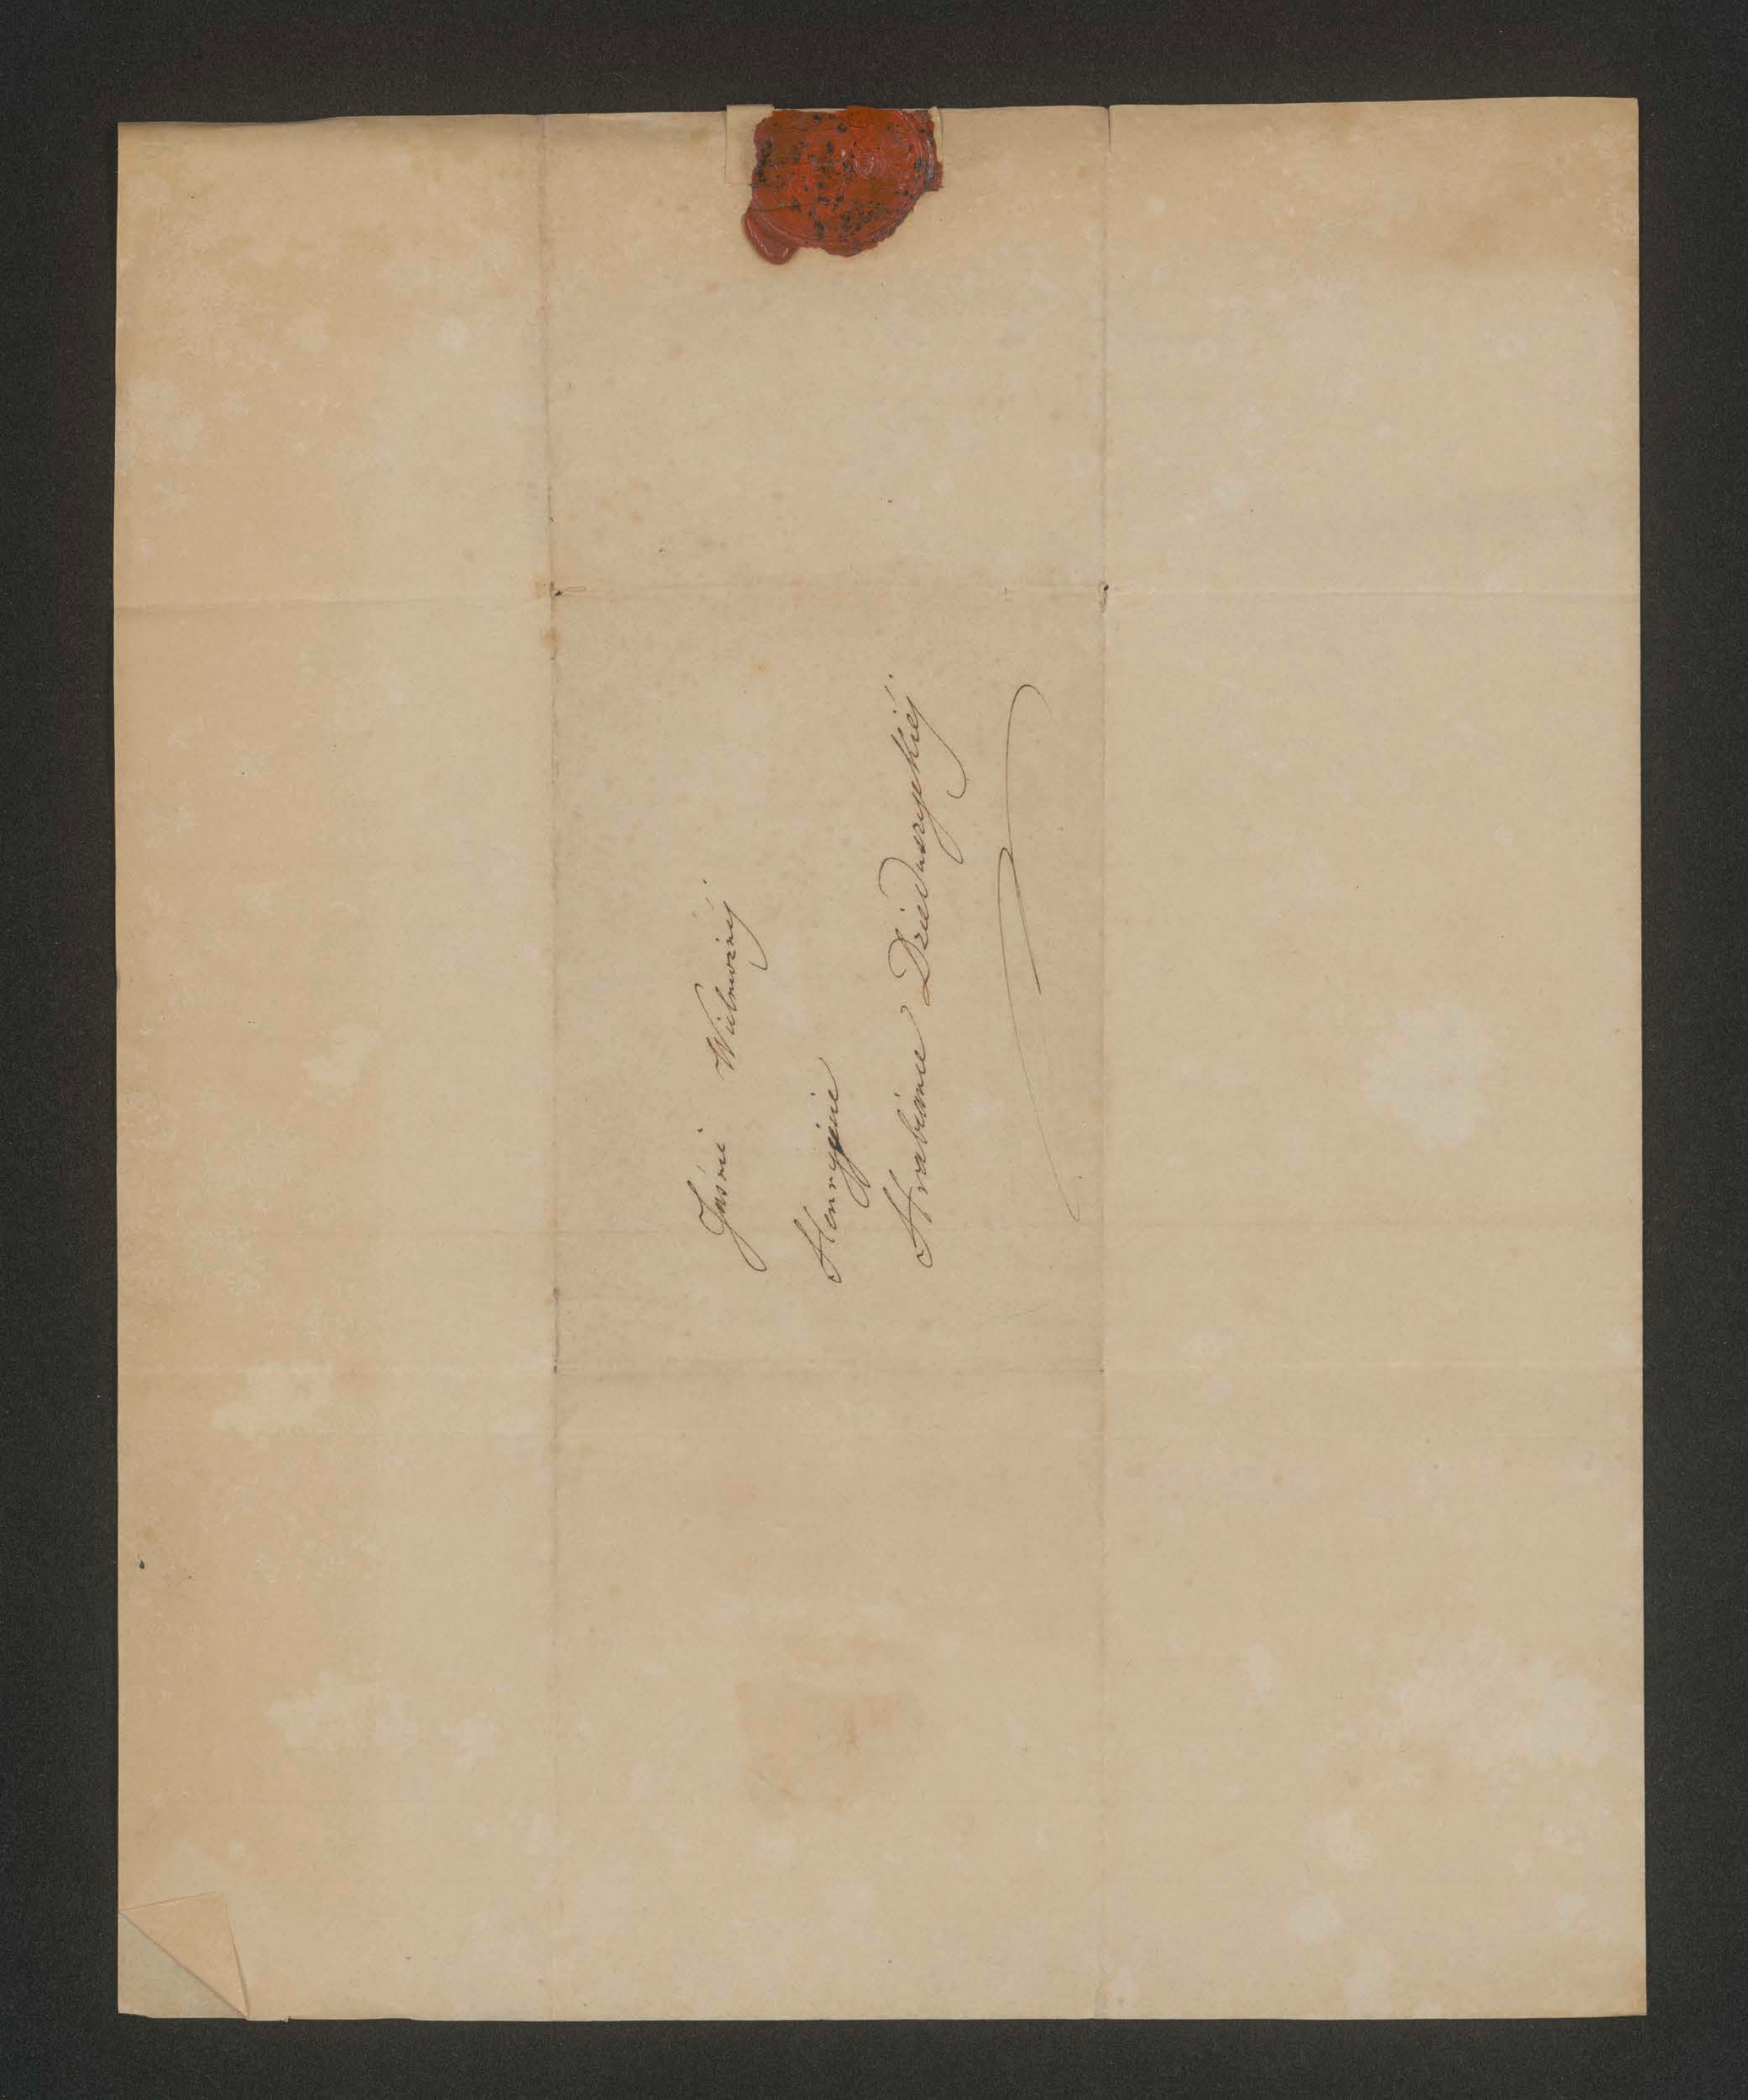 Jaśnie Wielmożnéj
Henryjecie
Hrabinie Dzieduszyckiéj